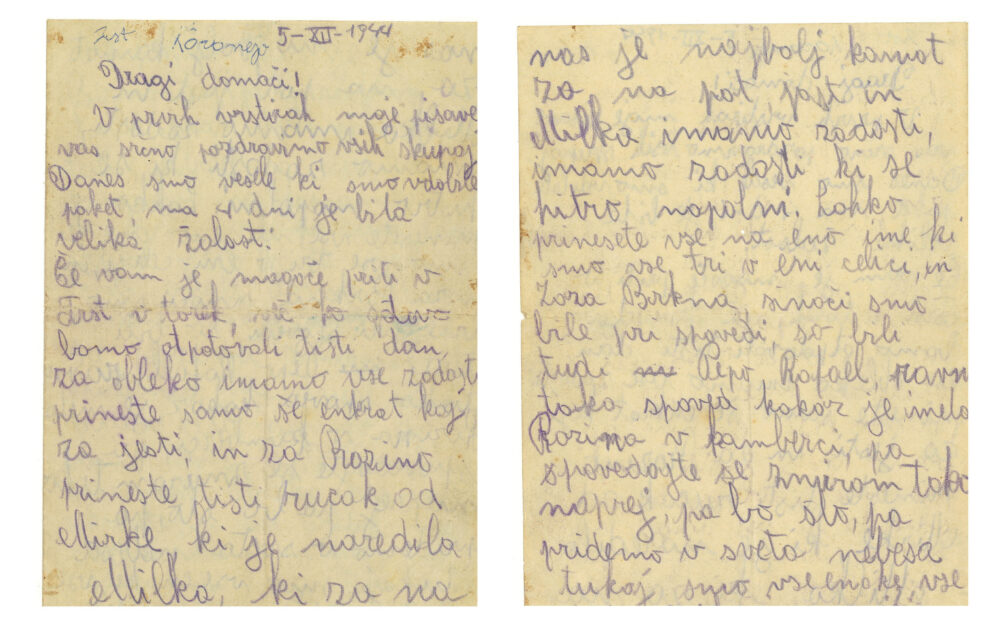 Trst 5-XII-1944
Dragi domači!
V prvih vrsticah moje pisave
vas srčno pozdravimo vsih skupaj
Danes smo vesele ki smo vdobile
paket, ma 4 dni je bila
velika žalost.
Če vam je mogoče priti v
Trst v torek, več ko gotov-
bomo otpotovali tisti dan,
za obleko imamo vse zadosti
prineste samo še enkrat kaj
za jesti, in za Rozino
prineste tisti rucak od
Mirke ki je naredila
Milka, ki za na
nas je najbolj kamot
za na pot jast in
Milka imamo zadosti,
imamo zadosti ki se
hitro napolni. Lahko
prinesete vse na eno ime ki
smo vse tri v eni celici, in
Zora Brkna, sinoči smo
ble pri spovedi, so bli
tudi Pepo Rafael, ravn
tako spoved kakor je imela
Rozina v kamberci, pa
spovedajte se zmjerom tako
naprej, pa bo što, pa
pridemo v sveta nebesa
tukaj smo vse enake, vse